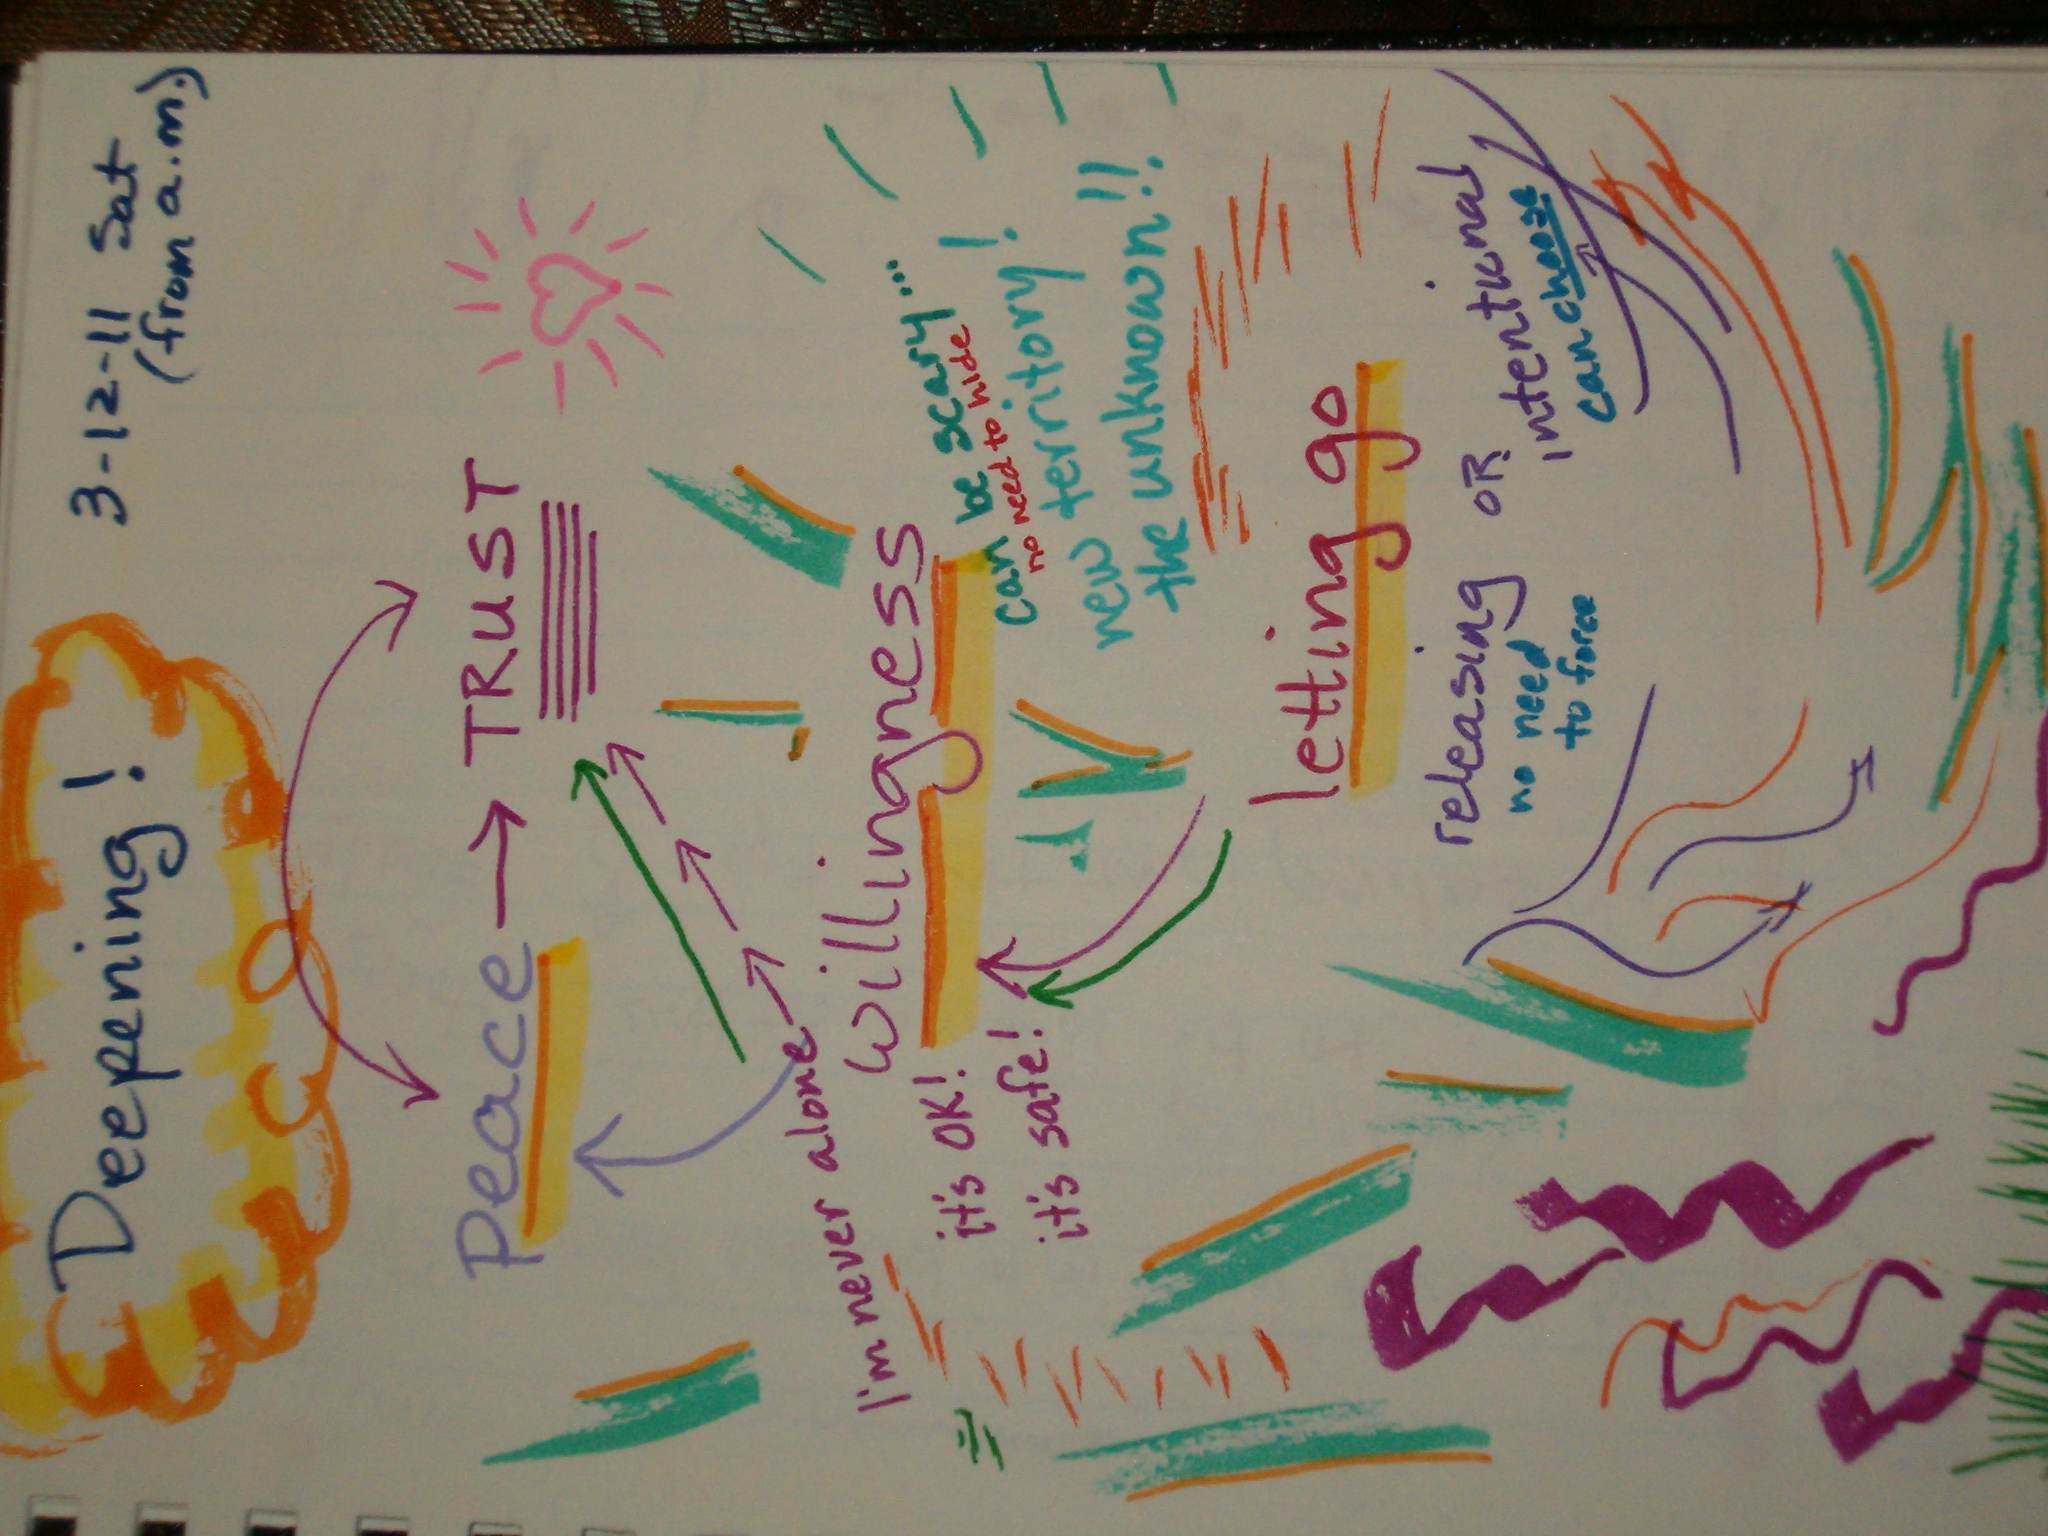 3-12-11 Sat
(from a.m.)
Deepening!
Peace → TRUST
I'm never alone
willingness
can be scary...!
no need to hide
it's OK!
new territory!
it's safe!
the unknown!!
letting go
releasing OR intentional
no need
to force
can choose